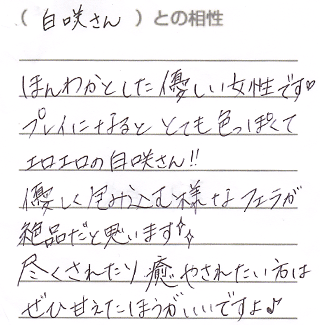 ( 白咲さん )との相性
ほんわかとした優しい女性です♡
プレイになると とても色っぽくて
エロエロの白咲さん!!
優しく包み込む様なフェラが
絶品だと思います✨
尽くされたり 癒やされたい方は
ぜひ甘えたほうがいいですよ♪